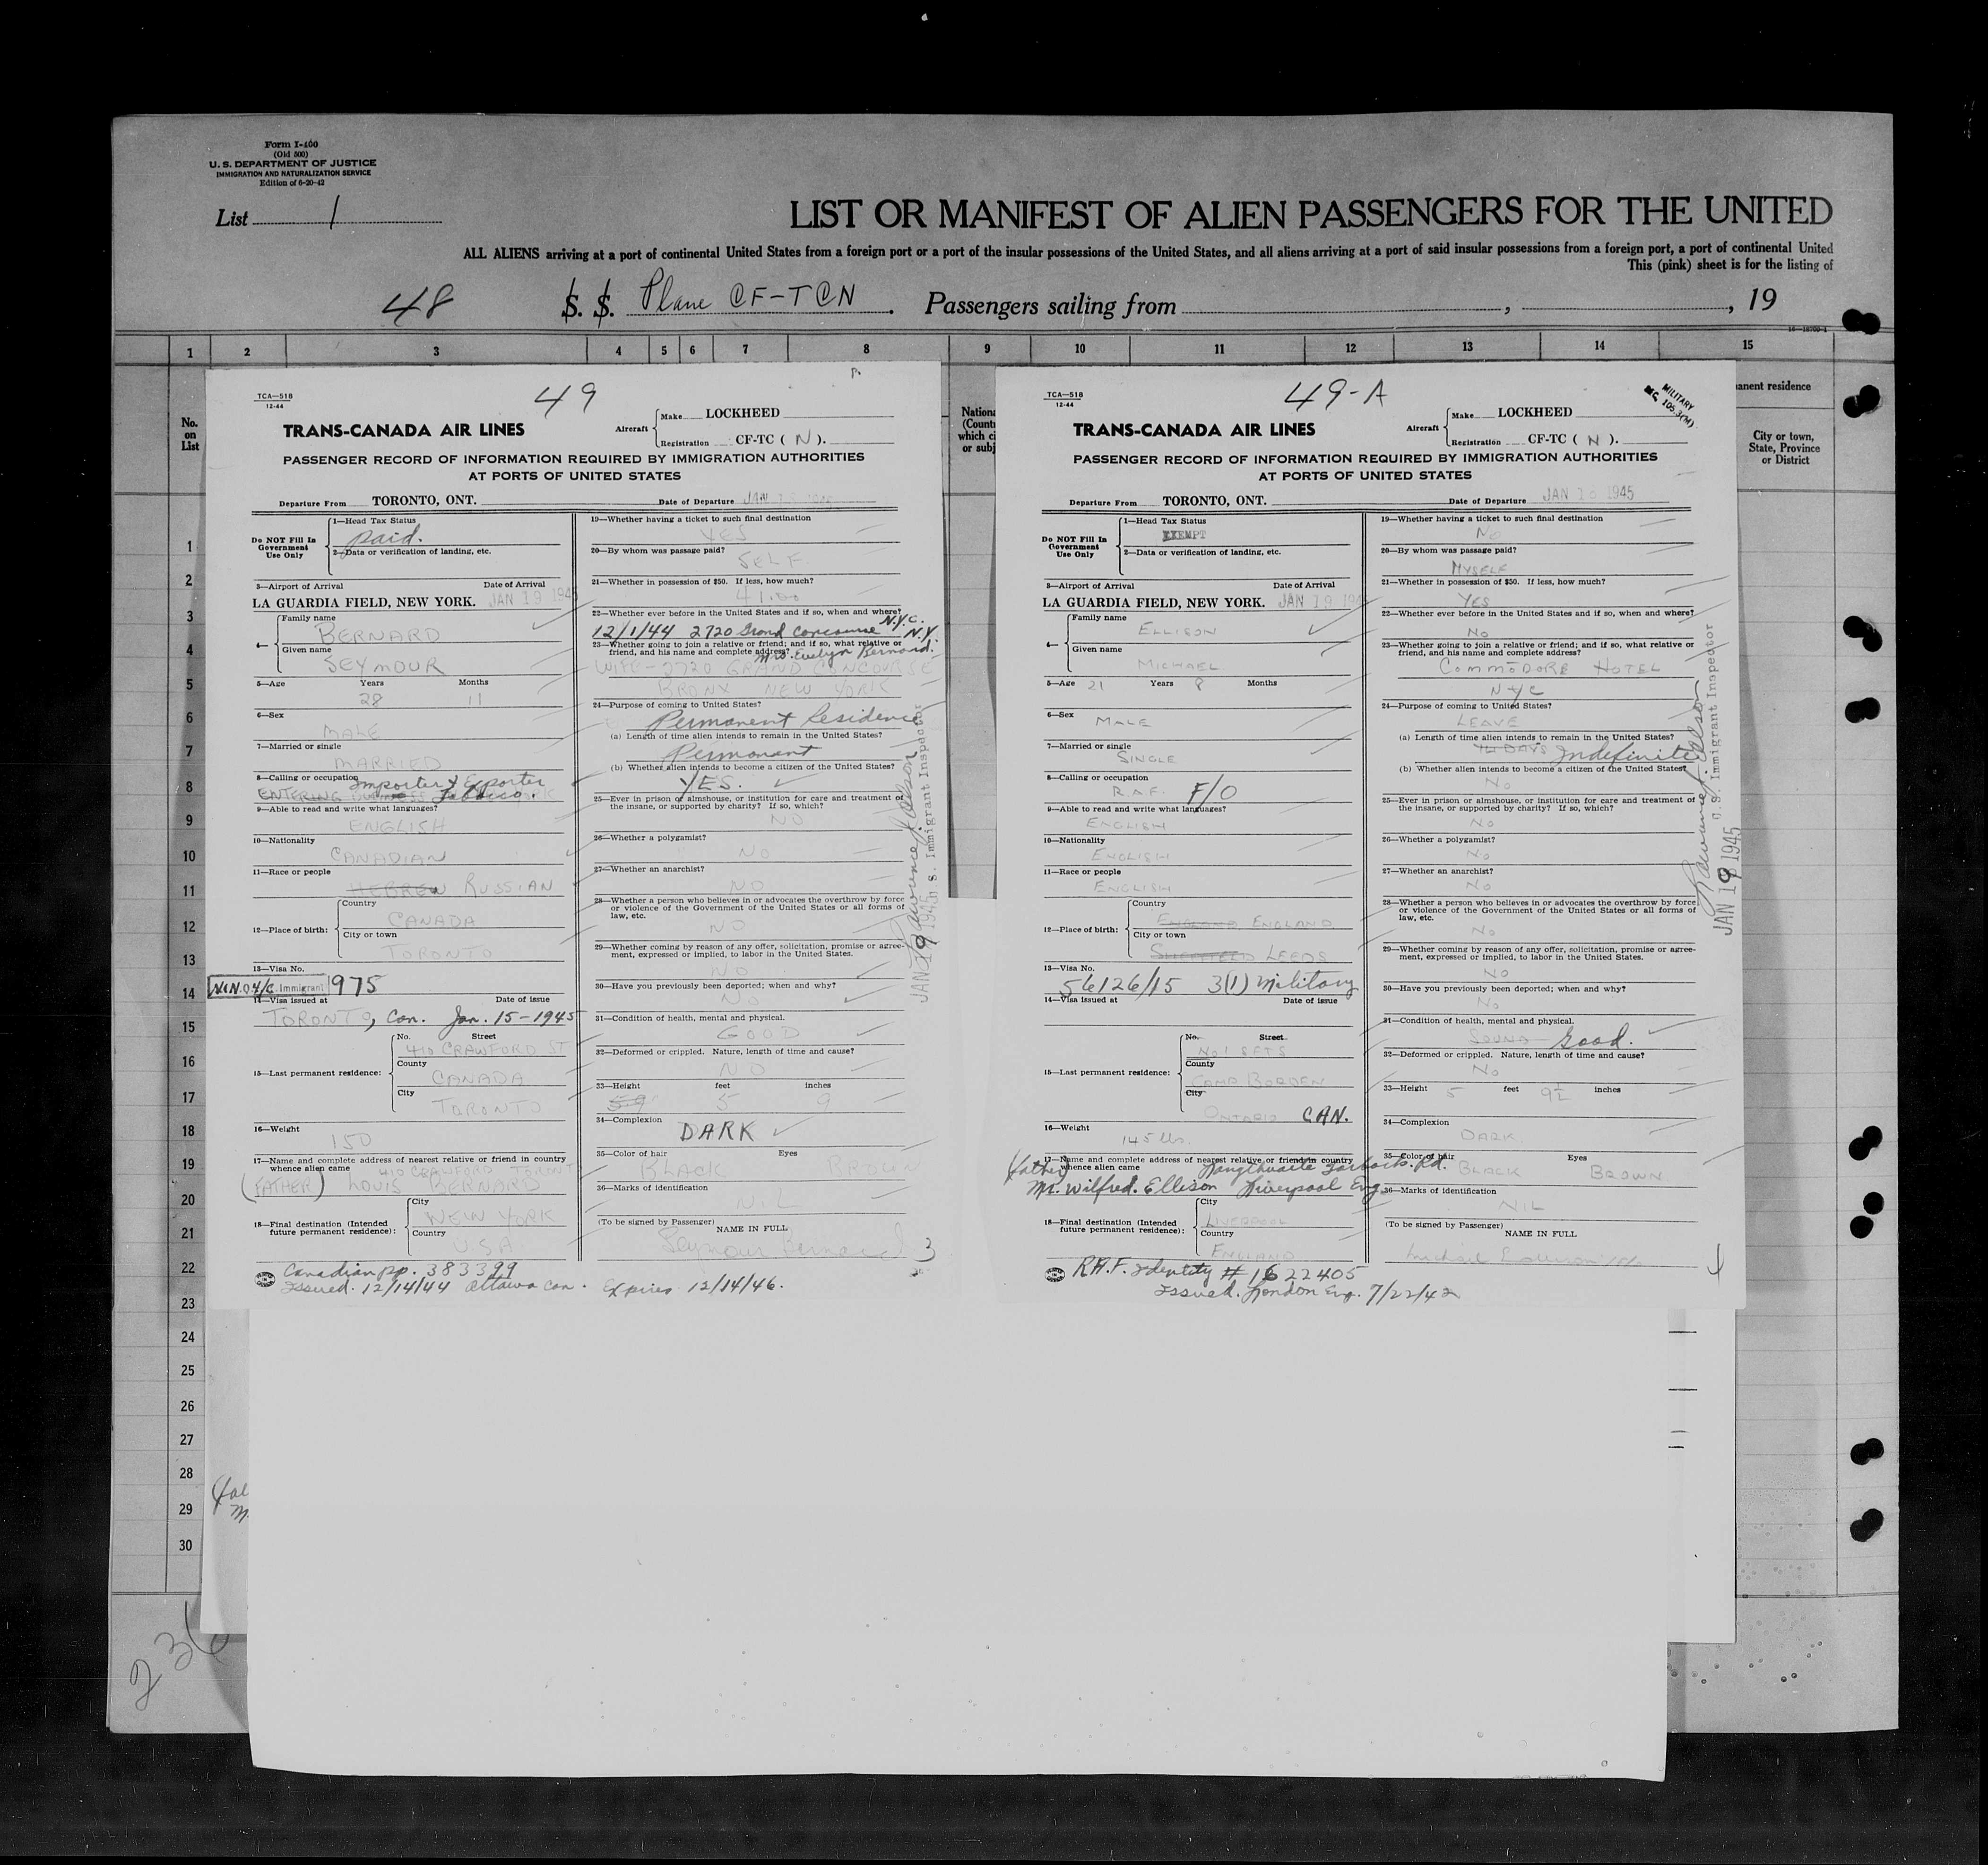 Form I-400
(Old 500)
U. S. DEPARTMENT OF JUSTICE
IMMIGRATION AND NATURALIZATION SERVICE
Edition of 6-20-42
List 1
LIST OR MANIFEST OF ALIEN PASSENGERS FOR THE UNITED
ALL ALIENS arriving at a port of continental United States from a foreign port or a port of the insular possessions of the United States, and all aliens arriving at a port of said insular possessions from a foreign port, a port of continental United
This (pink) sheet is for the listing of
48 S. S. Plane CF-TCN. Passengers sailing from , , 19
1 2 3 4 5 6 7 8 9 10 11 12 13 14 15
No.
on
List
1
2
3
4
5
6
7
8
9
10
11
12
13
14
15
16
17
18
19
20
21
22
23
24
25
26
27
28
29
30
236
TCA—518
12-44
49
TRANS-CANADA AIR LINES
Aircraft
Make LOCKHEED
Registration CF-TC ( N ).
PASSENGER RECORD OF INFORMATION REQUIRED BY IMMIGRATION AUTHORITIES
AT PORTS OF UNITED STATES
Departure From TORONTO, ONT. Date of Departure JAN 1945
Do NOT Fill In
Government
Use Only
1—Head Tax Status
Paid.
2—Data or verification of landing, etc.
3—Airport of Arrival Date of Arrival
LA GUARDIA FIELD, NEW YORK. JAN 19 194
4—
Family name
BERNARD
Given name
SEYMOUR
5—Age Years Months
28 11
6—Sex
MALE
7—Married or single
MARRIED
8—Calling or occupation
Importer & Exporter
ENTERING Tobacco.
9—Able to read and write what languages?
ENGLISH
10—Nationality
CANADIAN
11—Race or people
HEBREW RUSSIAN
12—Place of birth:
Country
CANADA
City or town
TORONTO
13—Visa No.
Immigrant 975
14—Visa issued at Date of issue
TORONTO, Can. Jan. 15-1945
15—Last permanent residence:
No. Street
410 CRAWFORD ST
County
CANADA
City
TORONTO
16—Weight
150
17—Name and complete address of nearest relative or friend in country
whence alien came 410 CRAWFORD TORONTO
(FATHER) LOUIS BERNARD
18—Final destination (Intended
future permanent residence):
City
NEW YORK
Country
U.S.A
Canadian pp. 383399
Issued. 12/14/44 Ottawa Can. Expires 12/14/46.
19—Whether having a ticket to such final destination
YES
20—By whom was passage paid?
SELF
21—Whether in possession of $50. If less, how much?
41.00
22—Whether ever before in the United States and if so, when and where?
12/1/44 2720 Grand Concourse N.Y.C. N.Y.
23—Whether going to join a relative or friend; and if so, what relative or
friend, and his name and complete address? Mrs. Evelyn Bernard.
WIFE - 2720 GRAND CONCOURSE
BRONX NEW YORK
24—Purpose of coming to United States?
Permanent Residence
(a) Length of time alien intends to remain in the United States?
Permanent
(b) Whether alien intends to become a citizen of the United States?
YES.
25—Ever in prison or almshouse, or institution for care and treatment of
the insane, or supported by charity? If so, which?
NO
26—Whether a polygamist?
NO
27—Whether an anarchist?
NO
28—Whether a person who believes in or advocates the overthrow by force
or violence of the Government of the United States or all forms of
law, etc.
NO
29—Whether coming by reason of any offer, solicitation, promise or agree-
ment, expressed or implied, to labor in the United States.
NO
30—Have you previously been deported; when and why?
NO
31—Condition of health, mental and physical.
GOOD
32—Deformed or crippled. Nature, length of time and cause?
NO
33—Height feet inches
59 5 9
34—Complexion
DARK
35—Color of hair Eyes
BLACK BROWN
36—Marks of identification
NIL
(To be signed by Passenger)
NAME IN FULL
Seymour Bernard 3
JAN 19 1945 U. S. Immigrant Inspector
National
(Count
which ci
or subj
TCA—518
12-44
49-A
MILITARY
TRANS-CANADA AIR LINES
Aircraft
Make LOCKHEED
Registration CF-TC ( N ).
PASSENGER RECORD OF INFORMATION REQUIRED BY IMMIGRATION AUTHORITIES
AT PORTS OF UNITED STATES
Departure From TORONTO, ONT. Date of Departure JAN 1945
Do NOT Fill In
Government
Use Only
1—Head Tax Status
EXEMPT
2—Data or verification of landing, etc.
3—Airport of Arrival Date of Arrival
LA GUARDIA FIELD, NEW YORK. JAN 19 194
4—
Family name
ELLISON
Given name
MICHAEL
5—Age 21 Years 8 Months
6—Sex
MALE
7—Married or single
SINGLE
8—Calling or occupation
R.A.F. F/O
9—Able to read and write what languages?
ENGLISH
10—Nationality
ENGLISH
11—Race or people
ENGLISH
12—Place of birth:
Country
ENGLAND ENGLAND
City or town
SHEFFIELD LEEDS
13—Visa No.
56126/15 3(1) Military
14—Visa issued at Date of issue
15—Last permanent residence:
No. Street
No 1 SFTS
County
CAMP BORDEN
City
ONTARIO CAN.
16—Weight
145 lbs.
17—Name and complete address of nearest relative or friend in country
whence alien came
(father)
Mr. Wilfred. Ellison Liverpool Eng.
18—Final destination (Intended
future permanent residence):
City
LIVERPOOL
Country
ENGLAND
R.A.F. Identity # 1622405
Issued. London Eng. 7/22/42
19—Whether having a ticket to such final destination
No
20—By whom was passage paid?
MYSELF
21—Whether in possession of $50. If less, how much?
YES
22—Whether ever before in the United States and if so, when and where?
No
23—Whether going to join a relative or friend; and if so, what relative or
friend, and his name and complete address?
COMMODORE HOTEL
NYC
24—Purpose of coming to United States?
LEAVE
(a) Length of time alien intends to remain in the United States?
14 DAYS Indefinite
(b) Whether alien intends to become a citizen of the United States?
No
25—Ever in prison or almshouse, or institution for care and treatment of
the insane, or supported by charity? If so, which?
No
26—Whether a polygamist?
No
27—Whether an anarchist?
No
28—Whether a person who believes in or advocates the overthrow by force
or violence of the Government of the United States or all forms of
law, etc.
No
29—Whether coming by reason of any offer, solicitation, promise or agree-
ment, expressed or implied, to labor in the United States.
NO
30—Have you previously been deported; when and why?
No
31—Condition of health, mental and physical.
SOUND Good.
32—Deformed or crippled. Nature, length of time and cause?
No
33—Height 5 feet 9½ inches
34—Complexion
DARK
35—Color of hair Eyes
BLACK BROWN
36—Marks of identification
NIL
(To be signed by Passenger)
NAME IN FULL
JAN 19 1945 U. S. Immigrant Inspector
anent residence
City or town,
State, Province
or District